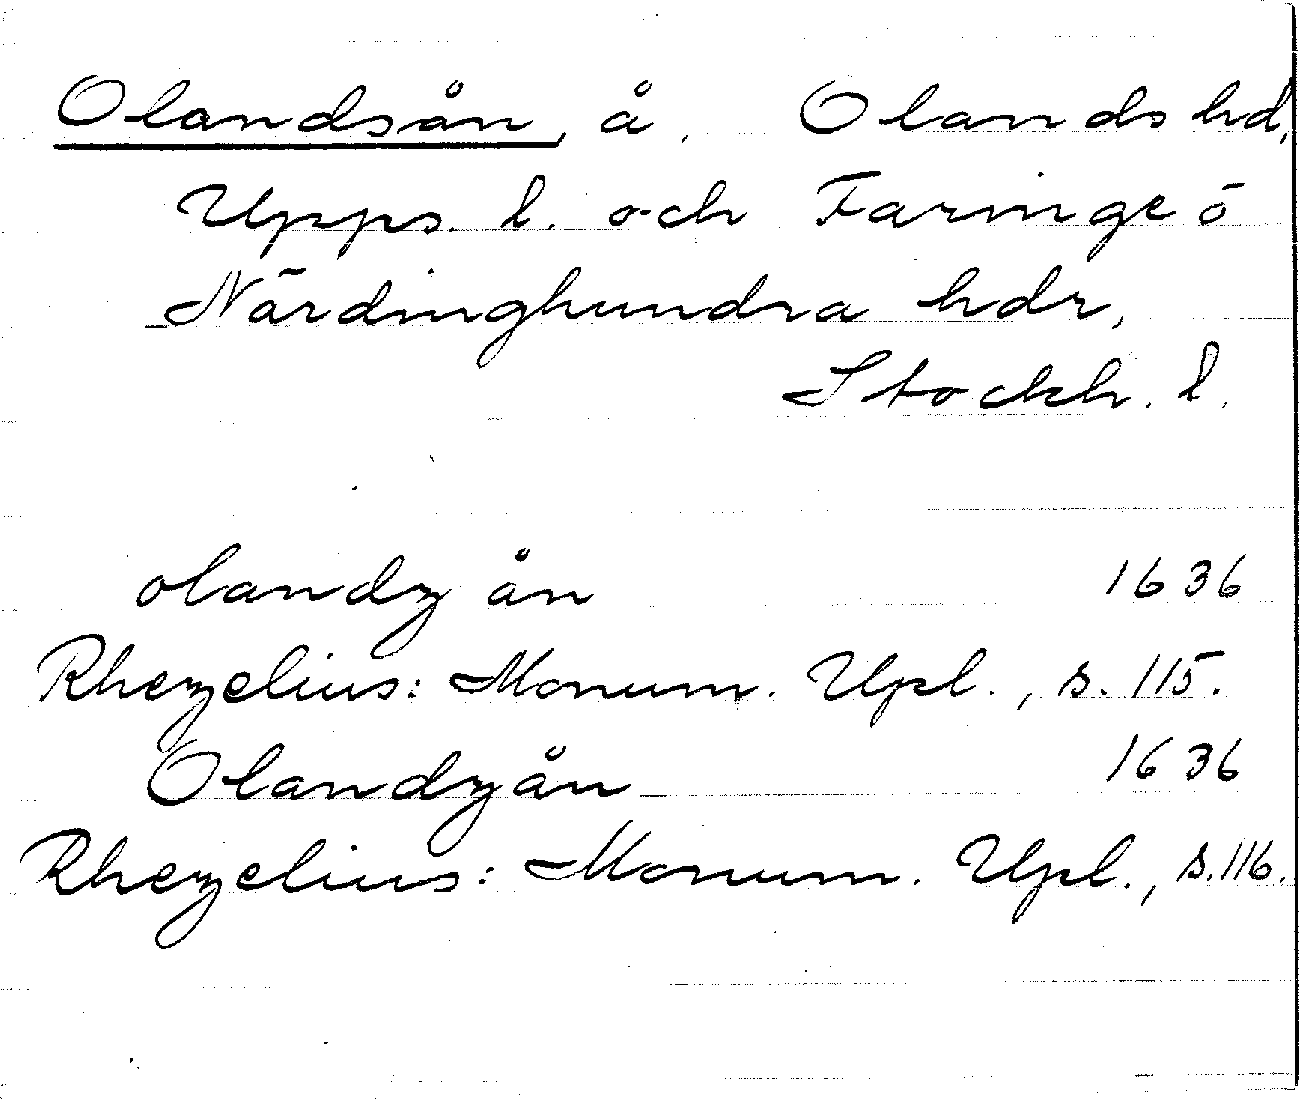 Olandsån, å. Olands hd,
Upps. l. och Faringe ö
Närdinghundra hdr,
Stockh. l.
olandz ån 1636
Rhezelius: Monum. Upl., s. 115.
Olandzån 1636
Rhezelius: Monum. Upl., s. 116.